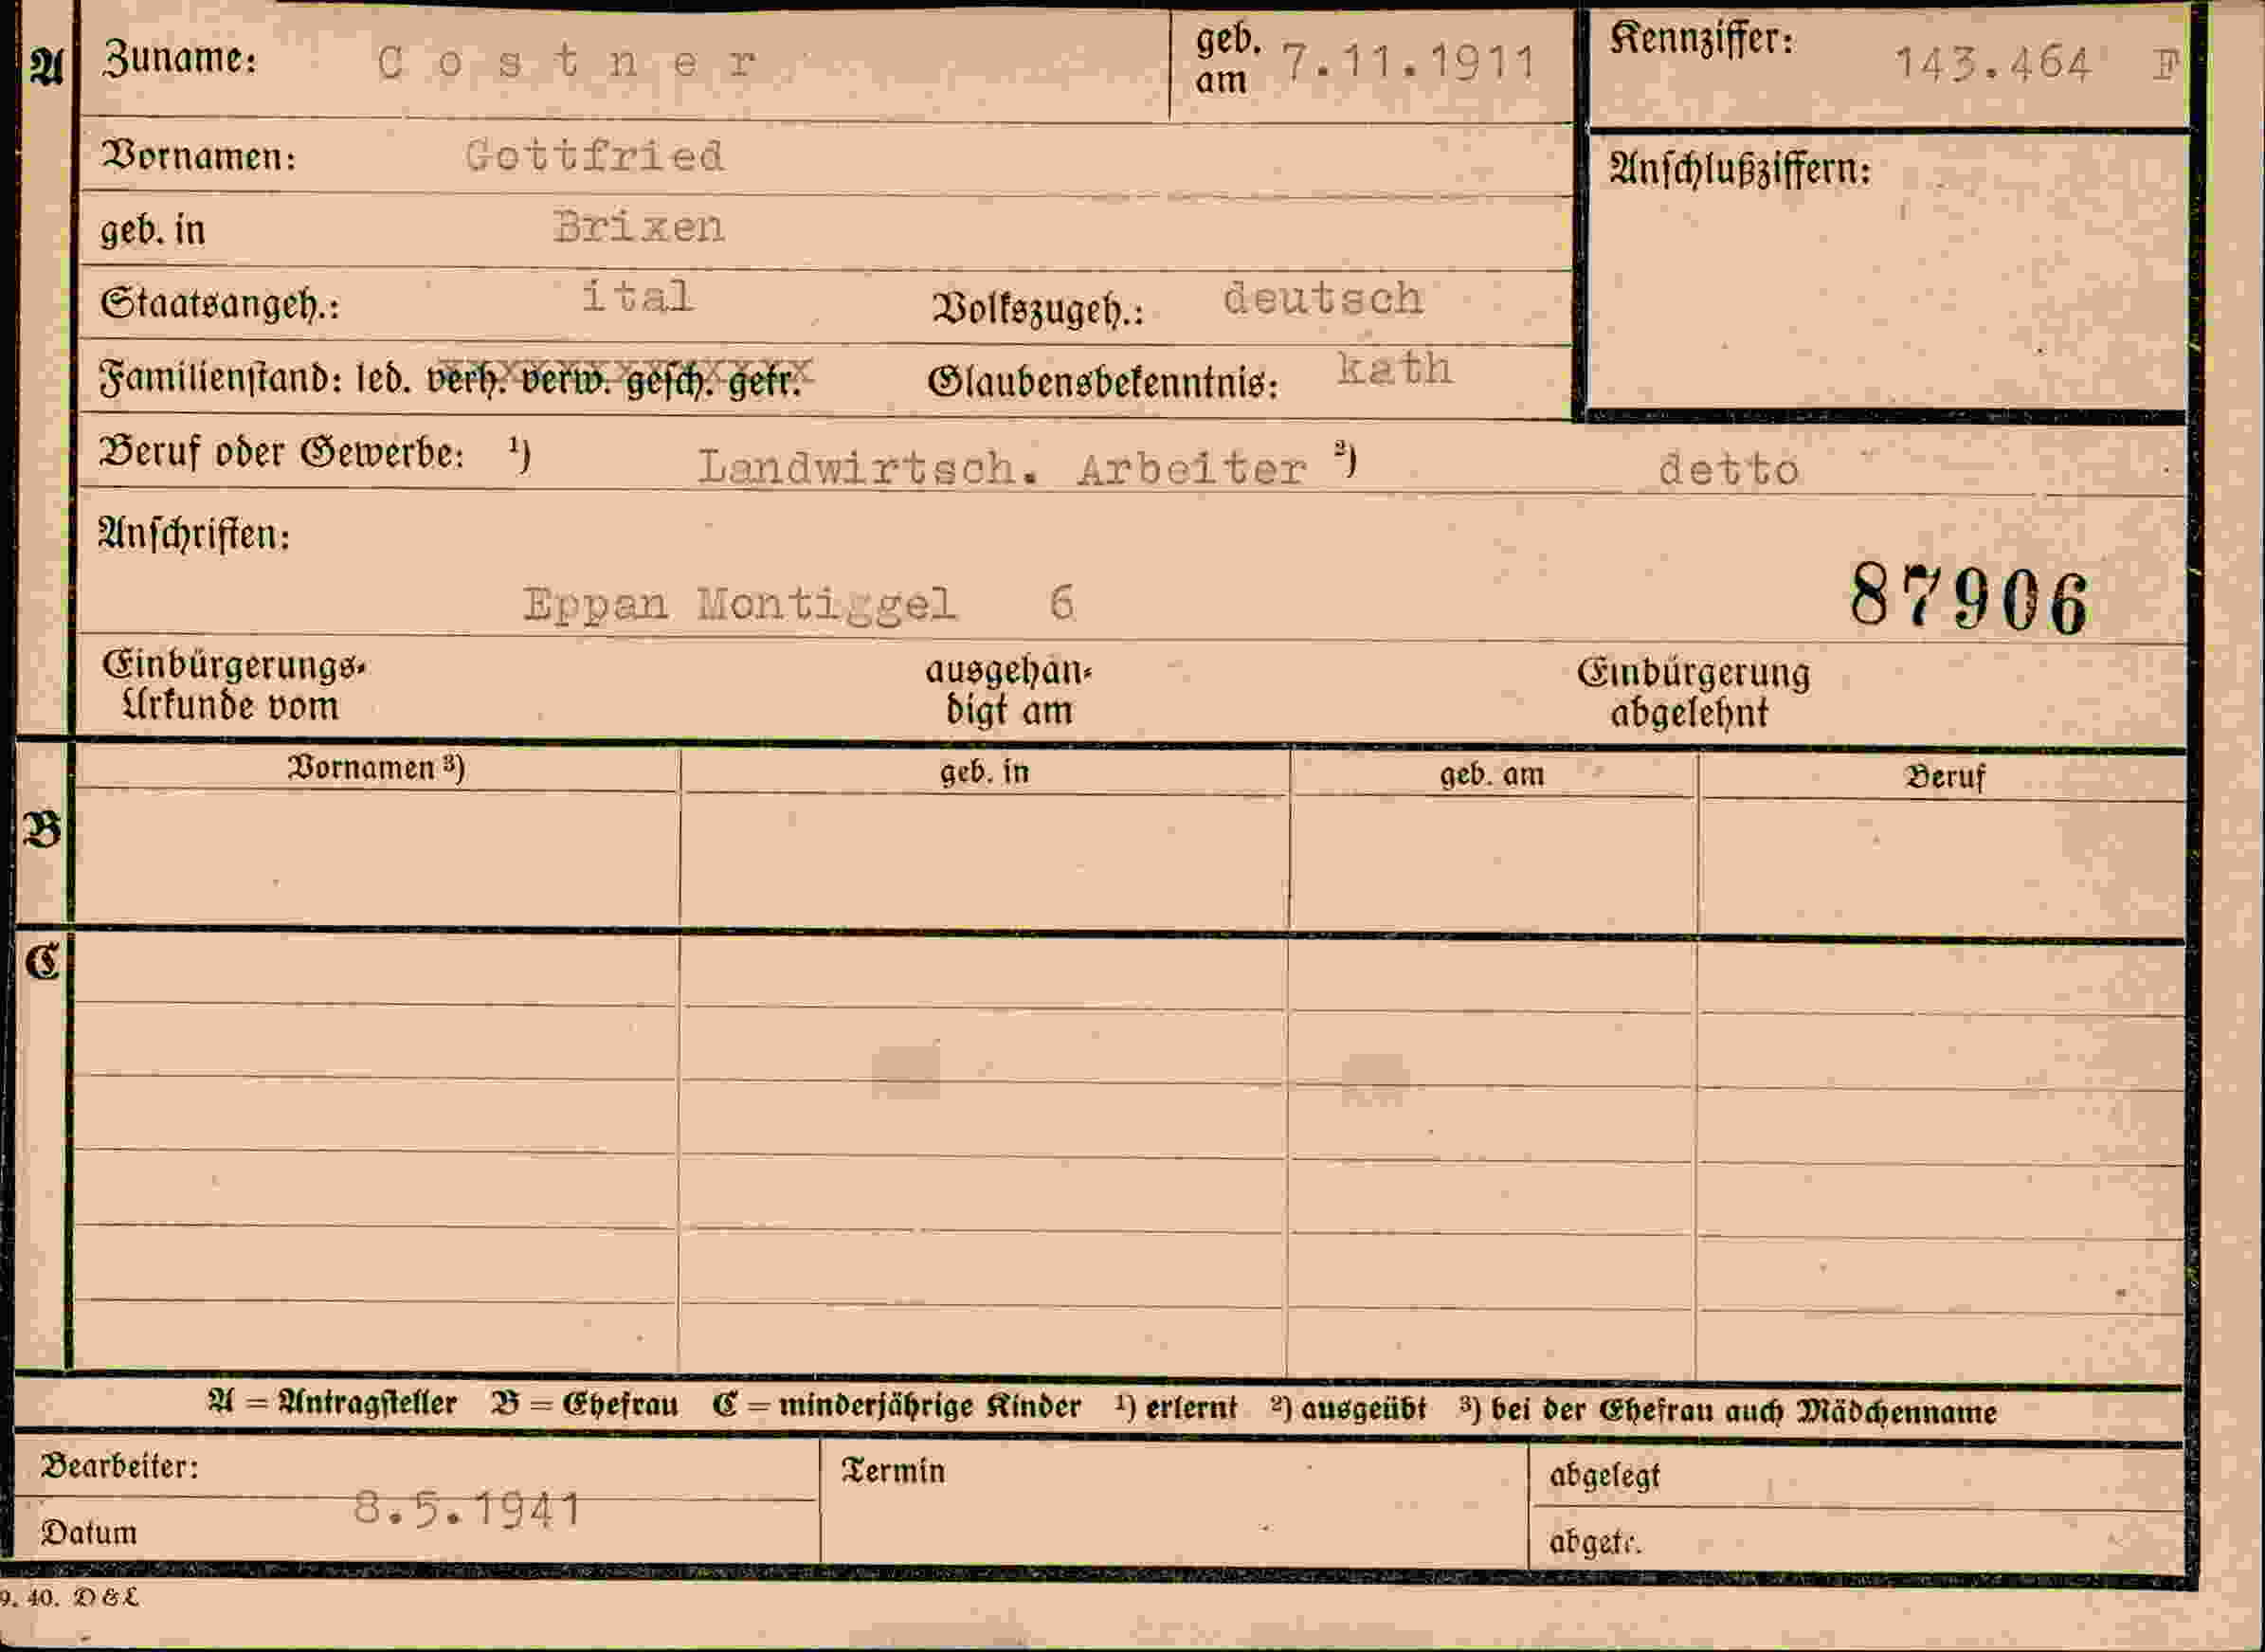 A Zuname: Costner geb. am 7.11.1911 Kennziffer: 143.464 F
Vornamen: Gottfried Anschlußziffern:
geb. in Brixen
Staatsangeh.: ital Volkszugeh.: deutsch
Familienstand: led. verh. verw. gesch. getr. Glaubensbekenntnis: kath
Beruf oder Gewerbe: ¹) Landwirtsch. Arbeiter ²) detto
Anschriften:
Eppan Montiggel 6 87906
Einbürgerungs-Urkunde vom ausgehändigt am Einbürgerung abgelehnt
Vornamen ³) geb. in geb. am Beruf
B
C
A = Antragsteller B = Ehefrau C = minderjährige Kinder ¹) erlernt ²) ausgeübt ³) bei der Ehefrau auch Mädchenname
Bearbeiter: Termin abgelegt
8.5.1941
Datum abgetr.
9. 40. D & L